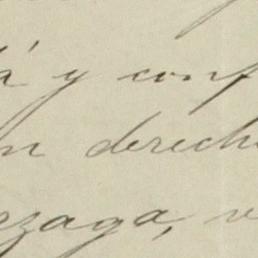 á y conf
n derech
rzaga, v